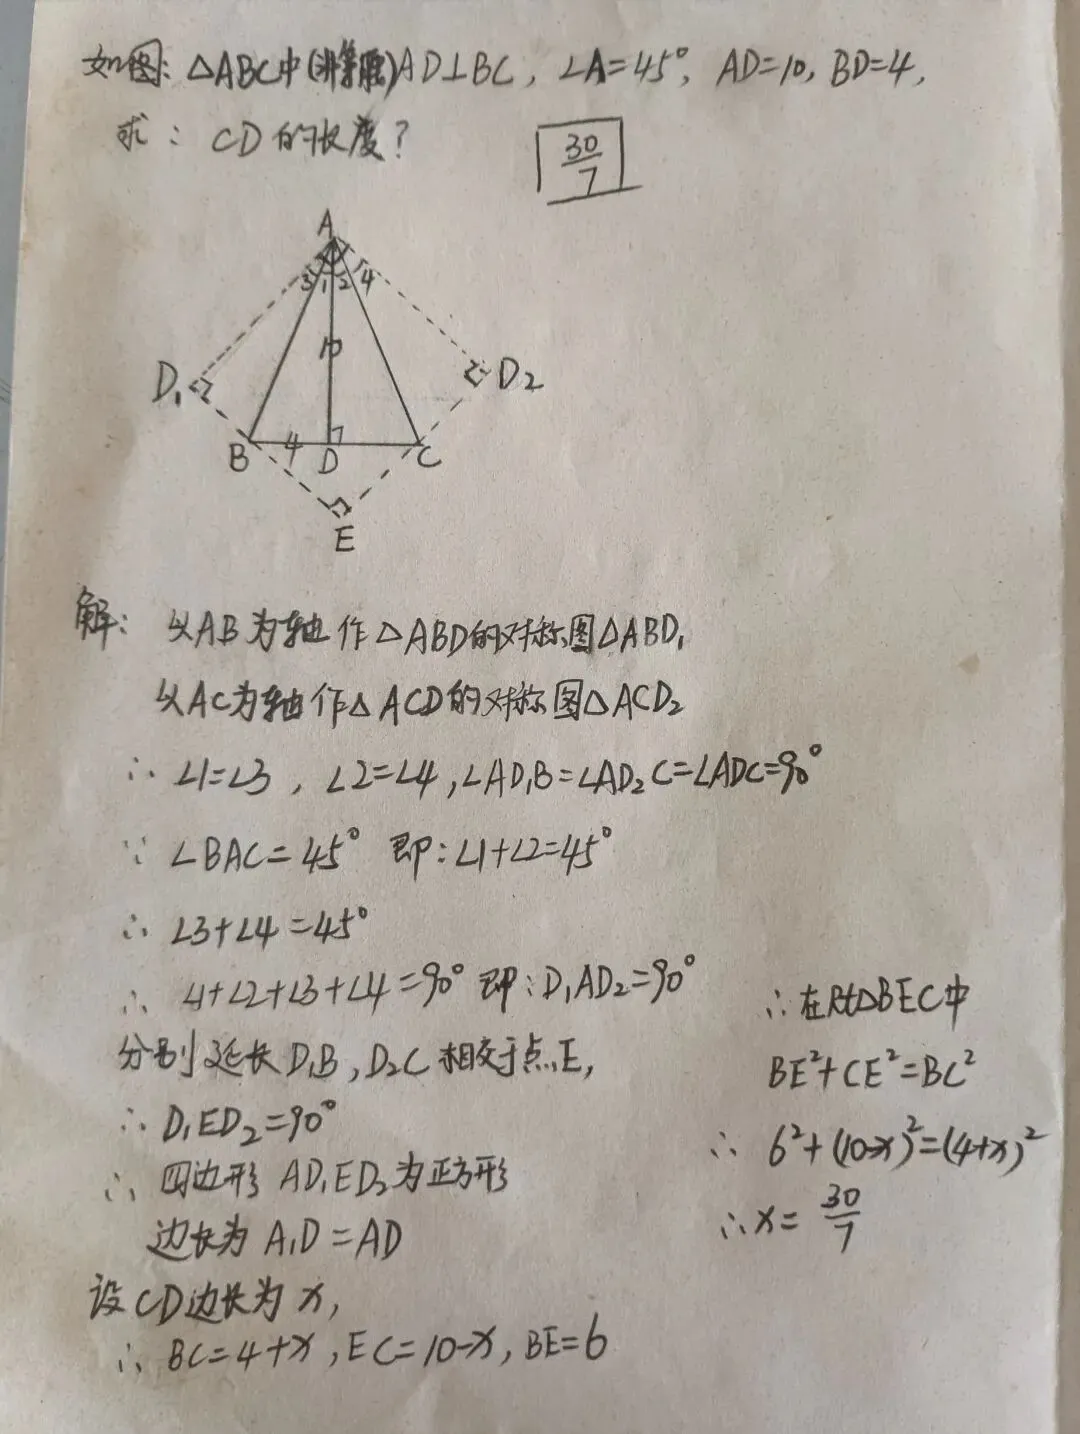 如图: △ABC中(非等腰)AD⊥BC, ∠A=45°, AD=10, BD=4,
求: CD的长度?
30/7
A
3 1 2 4
10
D₁
D₂
B 4 D C
E
解: 以AB为轴作△ABD的对称图△ABD₁
以AC为轴作△ACD的对称图△ACD₂
∴ ∠1=∠3, ∠2=∠4, ∠AD₁B=∠AD₂C=∠ADC=90°
∵ ∠BAC=45° 即:∠1+∠2=45°
∴ ∠3+∠4=45°
∴ ∠1+∠2+∠3+∠4=90° 即:D₁AD₂=90°
分别延长D₁B, D₂C相交于点E,
∴ D₁ED₂=90°
∴ 四边形 AD₁ED₂为正方形
边长为 A₁D=AD
设CD边长为x,
∴ BC=4+x, EC=10-x, BE=6
∴在Rt△BEC中
BE²+CE²=BC²
∴ 6²+(10-x)²=(4+x)²
∴x=30/7